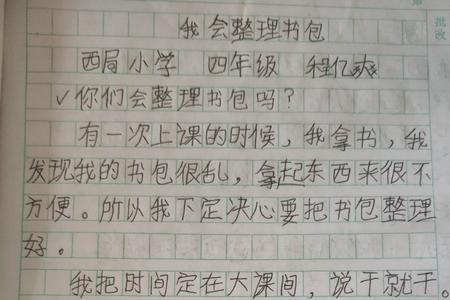 批
改
我会整理书包
西局小学 四年级 程亿爽
✓你们会整理书包吗?
有一次上课的时候,我拿书,我
发现我的书包很乱,拿起东西来很不
方便。所以我下定决心要把书包整理
好。
我把时间定在大课间,说干就干。